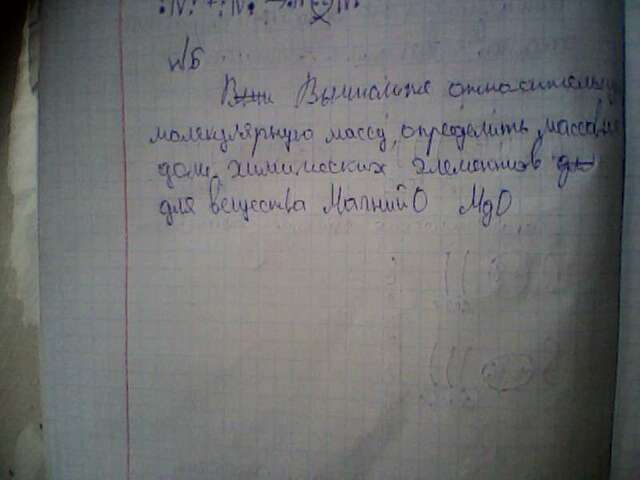 :N: + :N: → N N:
№6
Вычислите относительную
молекулярную массу, определить массовые
доли химических элементов
для вещества МагнийО MgO